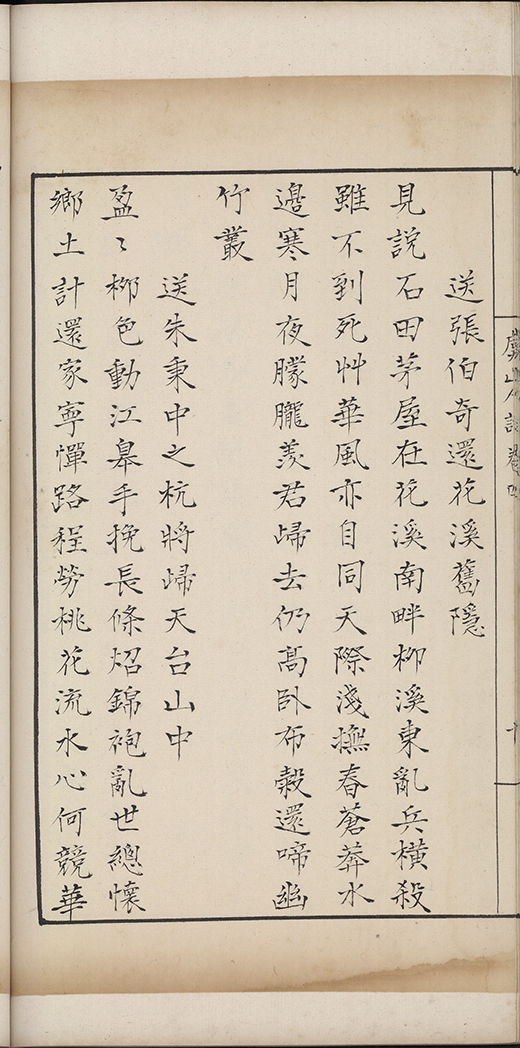 虞山人詩卷四
十
送張伯奇還花溪舊隱
見說石田茅屋在花溪南畔柳溪東亂兵橫殺
雖不到死艸華風亦自同天際淺撫春蒼莽水
邊寒月夜朦朧羨君歸去仍高臥布穀還啼幽
竹叢
送朱秉中之杭將歸天台山中
盈〻柳色動江皋手挽長條炤錦袍亂世總懷
鄉土計還家寧憚路程勞桃花流水心何競華